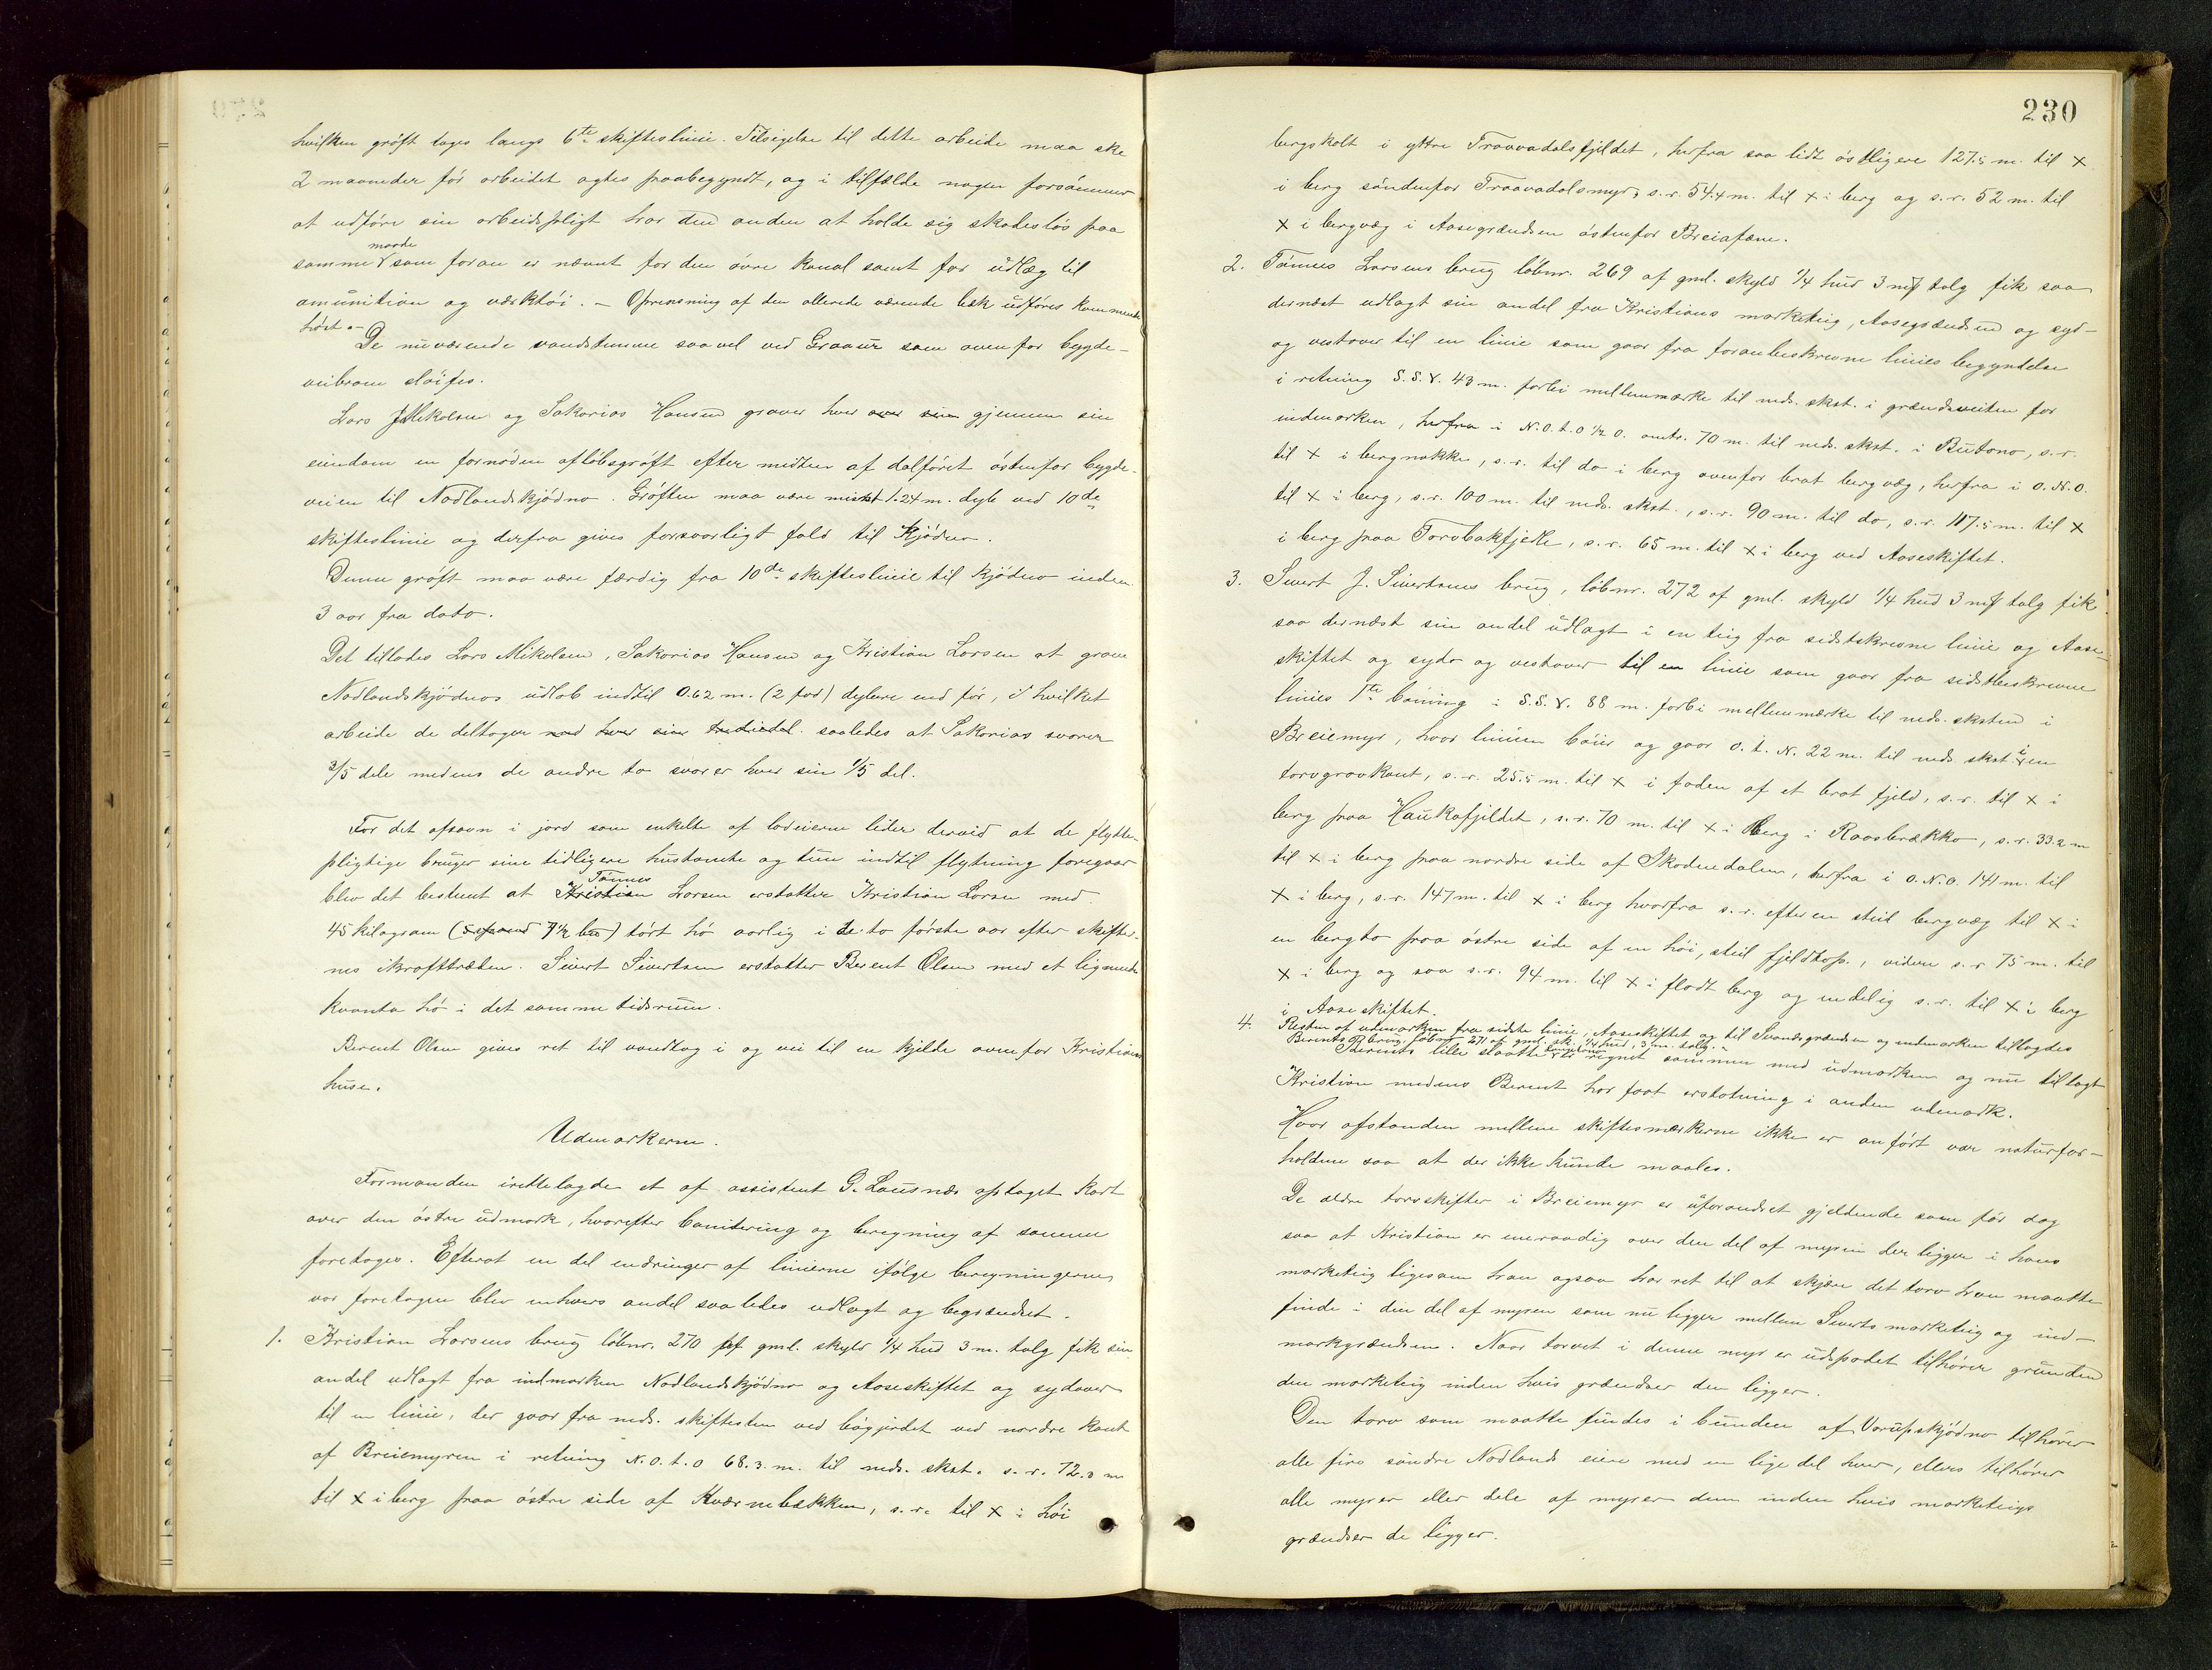 hvilken grøft tages langs 6te skifteslinie. Tilsigelse til dette arbeide maa ske
2 maaneder før arbeidet agtes paabegyndt, og i tilfælde nogen forsømmer
at udføre sin arbeidspligt har den anden at holde sig skadesløs paa
samme maade som foran er nævnt for den øvre kanal samt for udlæg til
amunition og værktøi. – Oprensning af den allerede værende bæk udføres kommende
høst. –
De nuværende vandstemme saavel ved Graaur som ovenfor bygde-
veibroen sløifes.
Lars Mikalsen og Sakarias Hansen graver hver over sin gjennem sin
eiendom en fornøden afløbsgrøft efter midten af dalføret østenfor bygde-
veien til Nodlandskjødno. Grøften maa være mindst 1.24 m. dyb ved 10de
skifteslinie og derfra gives forsvarligt fald til Kjødno.
Denne grøft maa være færdig fra 10de skifteslinie til kjødno inden
3 aar fra dato.
Det tillades Lars Mikalsen, Sakarias Hansen og Kristian Larsen at grave
Nodlandskjødnos udløb indtil 0.62 m. (2 fod) dybere end før, i hvilket
arbeide de deltager med hver sin trediedel. saaledes at Sakarias svarer
3/5 dele medens de andre to svarer hver sin 1/5 del.
For det afsavn i jord som enkelte af lodeierne lider derved at de flytte-
pligtige bruger sine tidligere hustomte og tun indtil flytning foregaar
blev det bestemt at Kristian Tønnes Larsen erstatter Kristian Larsen med
45 kilogram (7 1/2 ) tørt hø aarlig i de to første aar efter skifter-
nes ikrafttræden. Sivert Sivertsen erstatter Berent Olsen med et lignende
kvanta hø i det samme tidsrum.
Berent Olsen gives ret til vandtag i og vei til en kjilde ovenfor Kristians
huse.
Udmarkerne.
Formanden irettelagde et af assistent G. Lausnes optaget kart
over den østre udmark, hvorefter bonitering og beregning af samme
foretoges. Efterat en del endringer af linierne ifølge beregningerne
var foretagen blev enhvers andel saaledes udlagt og begrændset.
1. Kristian Larsens brug løbnr. 270 af gml. skyld 1/4 hud 3 m. talg fik sin
andel udlagt fra indmarken Nodlandskjødno og Aaseskiftet og sydover
til en linie, der gaar fra neds. skiftesten ved bøgjerdet ved nordre kant
af Breiemyren i retning N.O.t.O 68.3 m. til neds. skst. s.r. 72.3 m
til x i berg paa østre side af Kværnebækken, s.r. til x i høi
230
bergskolt i yttre Traavadalsfjeldet, herfra saa lidt østligere 127.5 m. til x
i berg søndenfor Traavadalsmyr, s.r. 54.4 m. til x i berg og s.r. 52 m. til
x i bergvæg i Aasegrændsen østenfor Breiafæne.
2. Tønnes Larsens brug løbnr. 269 af gml. skyld 1/4 hud 3 m talg fik saa
dernæst udlagt sin andel fra Kristians marketeig, Aasegrændsen og syd-
og vestover til en linie som gaar fra foranbeskrevne linies begyndelse
i retning S.S.V. 43 m. forbi mellemmærke til neds. skst. i grændseveiten for
indmarken, herfra i N.O.t.O 1/2 O. omtr. 70 m. til neds. skst. i Butono, s.r.
til x i bergnakke, s.r. til do i berg ovenfor brat bergvæg, herfra i O.N.O.
til x i berg, s.r. 100 m. til neds. skst., s.r. 90 m. til do, s.r. 117.5 m. til x
i berg paa Torvbakfjelle, s.r. 65 m. til x i berg ved Aaseskiftet.
3. Sivert J. Sivertsens brug, løbnr. 272 af gml. skyld 1/4 hud 3 m talg fik
saa dernæst sin andel udlagt i en teig fra sidstskrevne linie og Aase-
skiftet og syd- og vestover til en linie som gaar fra sidstbeskrevne
linies 1ste bøining i S.S.V. 88 m. forbi mellemmærke til neds. sksten i
Breiemyr, hvor linien bøier og gaar O.t.N. 22 m. til neds. skst. i en
torvgravkant, s.r. 25.5 m. til x i foden af et brat fjeld, s.r. til x i
berg paa Haukafjeldet, s.r. 70 m. til x i berg i Raasbrækko, s.r. 33.2 m
til x i berg paa nordre side af Skodnedalen, herfra i O.N.O. 141 m. til
x i berg, s.r. 147 m. til x i berg hvorfra s.r. efter en steil bergvæg til x i
en bergto paa østre side af en høi, steil fjeldtop., videre s.r 75 m. til
x i berg og saa s.r. 94 m. til x i fladt berg og endelig s.r. til x i berg
i Aaseskiftet.
4. Resten af udmarken fra sidste linie, Aaseskiftet og til Svandsgrændsen og indmarken tillagdes
Berents brug løbnr. 271 af gml. sk. 1/4 hud, 3 m. talg.
Berents lille slaatte er regnet sammen med udmarken og nu tillagt
Kristian medens Berent har faat erstatning i anden udmark.
Hvor afstanden mellem skiftesmærkerne ikke er anført var naturfor-
holdene saa at der ikke kunde maales.
De ældre torvskifter i Breiemyr er uforandret gjeldende som før dog
saa at Kristian er eneraadig over den del af myren der ligger i hans
marketeig ligesom han ogsaa har ret til at skjære det torv han maatte
finde i den del af myren som nu ligger mellem Siverts marketeig og ind-
markgrændsen. Naar torvet i denne myr er udspadet tilhører grunden
den marketeig inden hvis grændser den ligger.
Den torv som maatte findes i bunden af Vorupskjødno tilhører
alle fire søndre Nodlands eiere med en lige del hver, ellers tilhører
alle myrer eller dele af myrer dem inden hvis marketeigs
grændser de ligger.